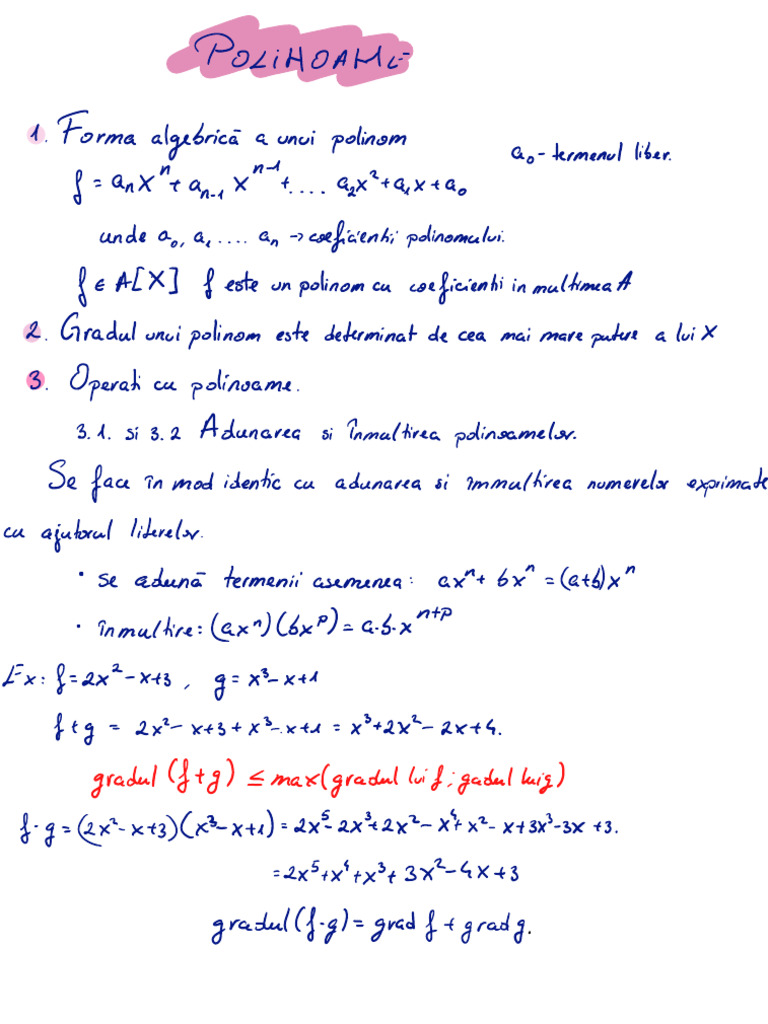 POLINOAME
1. Forma algebrică a unui polinom
a₀ - termenul liber.
f = aₙXⁿ + aₙ₋₁ Xⁿ⁻¹ + .... a₂x² + a₁x + a₀
unde a₀, a₁ .... aₙ → coeficientii polinomului.
f ∈ A[X] f este un polinom cu coeficienti in multimea A
2. Gradul unui polinom este determinat de cea mai mare putere a lui X
3. Operati cu polinoame.
3.1. si 3.2 Adunarea si înmultirea polinoamelor.
Se face în mod identic cu adunarea si immultirea numerelor exprimate
cu ajutorul literelor.
• se adună termenii asemenea: axⁿ + bxⁿ = (a+b)xⁿ
• înmultire: (axⁿ)(bxᵖ) = a·b·xⁿ⁺ᵖ
Ex: f = 2x² - x+3 , g = x³ - x+1
f+g = 2x² - x+3 + x³ - x+1 = x³+2x² - 2x+4.
gradul (f+g) ≤ max(gradul lui f; gadul lui g)
f·g = (2x² - x+3)(x³ - x+1) = 2x⁵ - 2x³ + 2x² - x⁴ + x² - x + 3x³ - 3x + 3.
= 2x⁵ + x⁴ + x³ + 3x² - 4x + 3
gradul (f·g) = grad f + grad g.